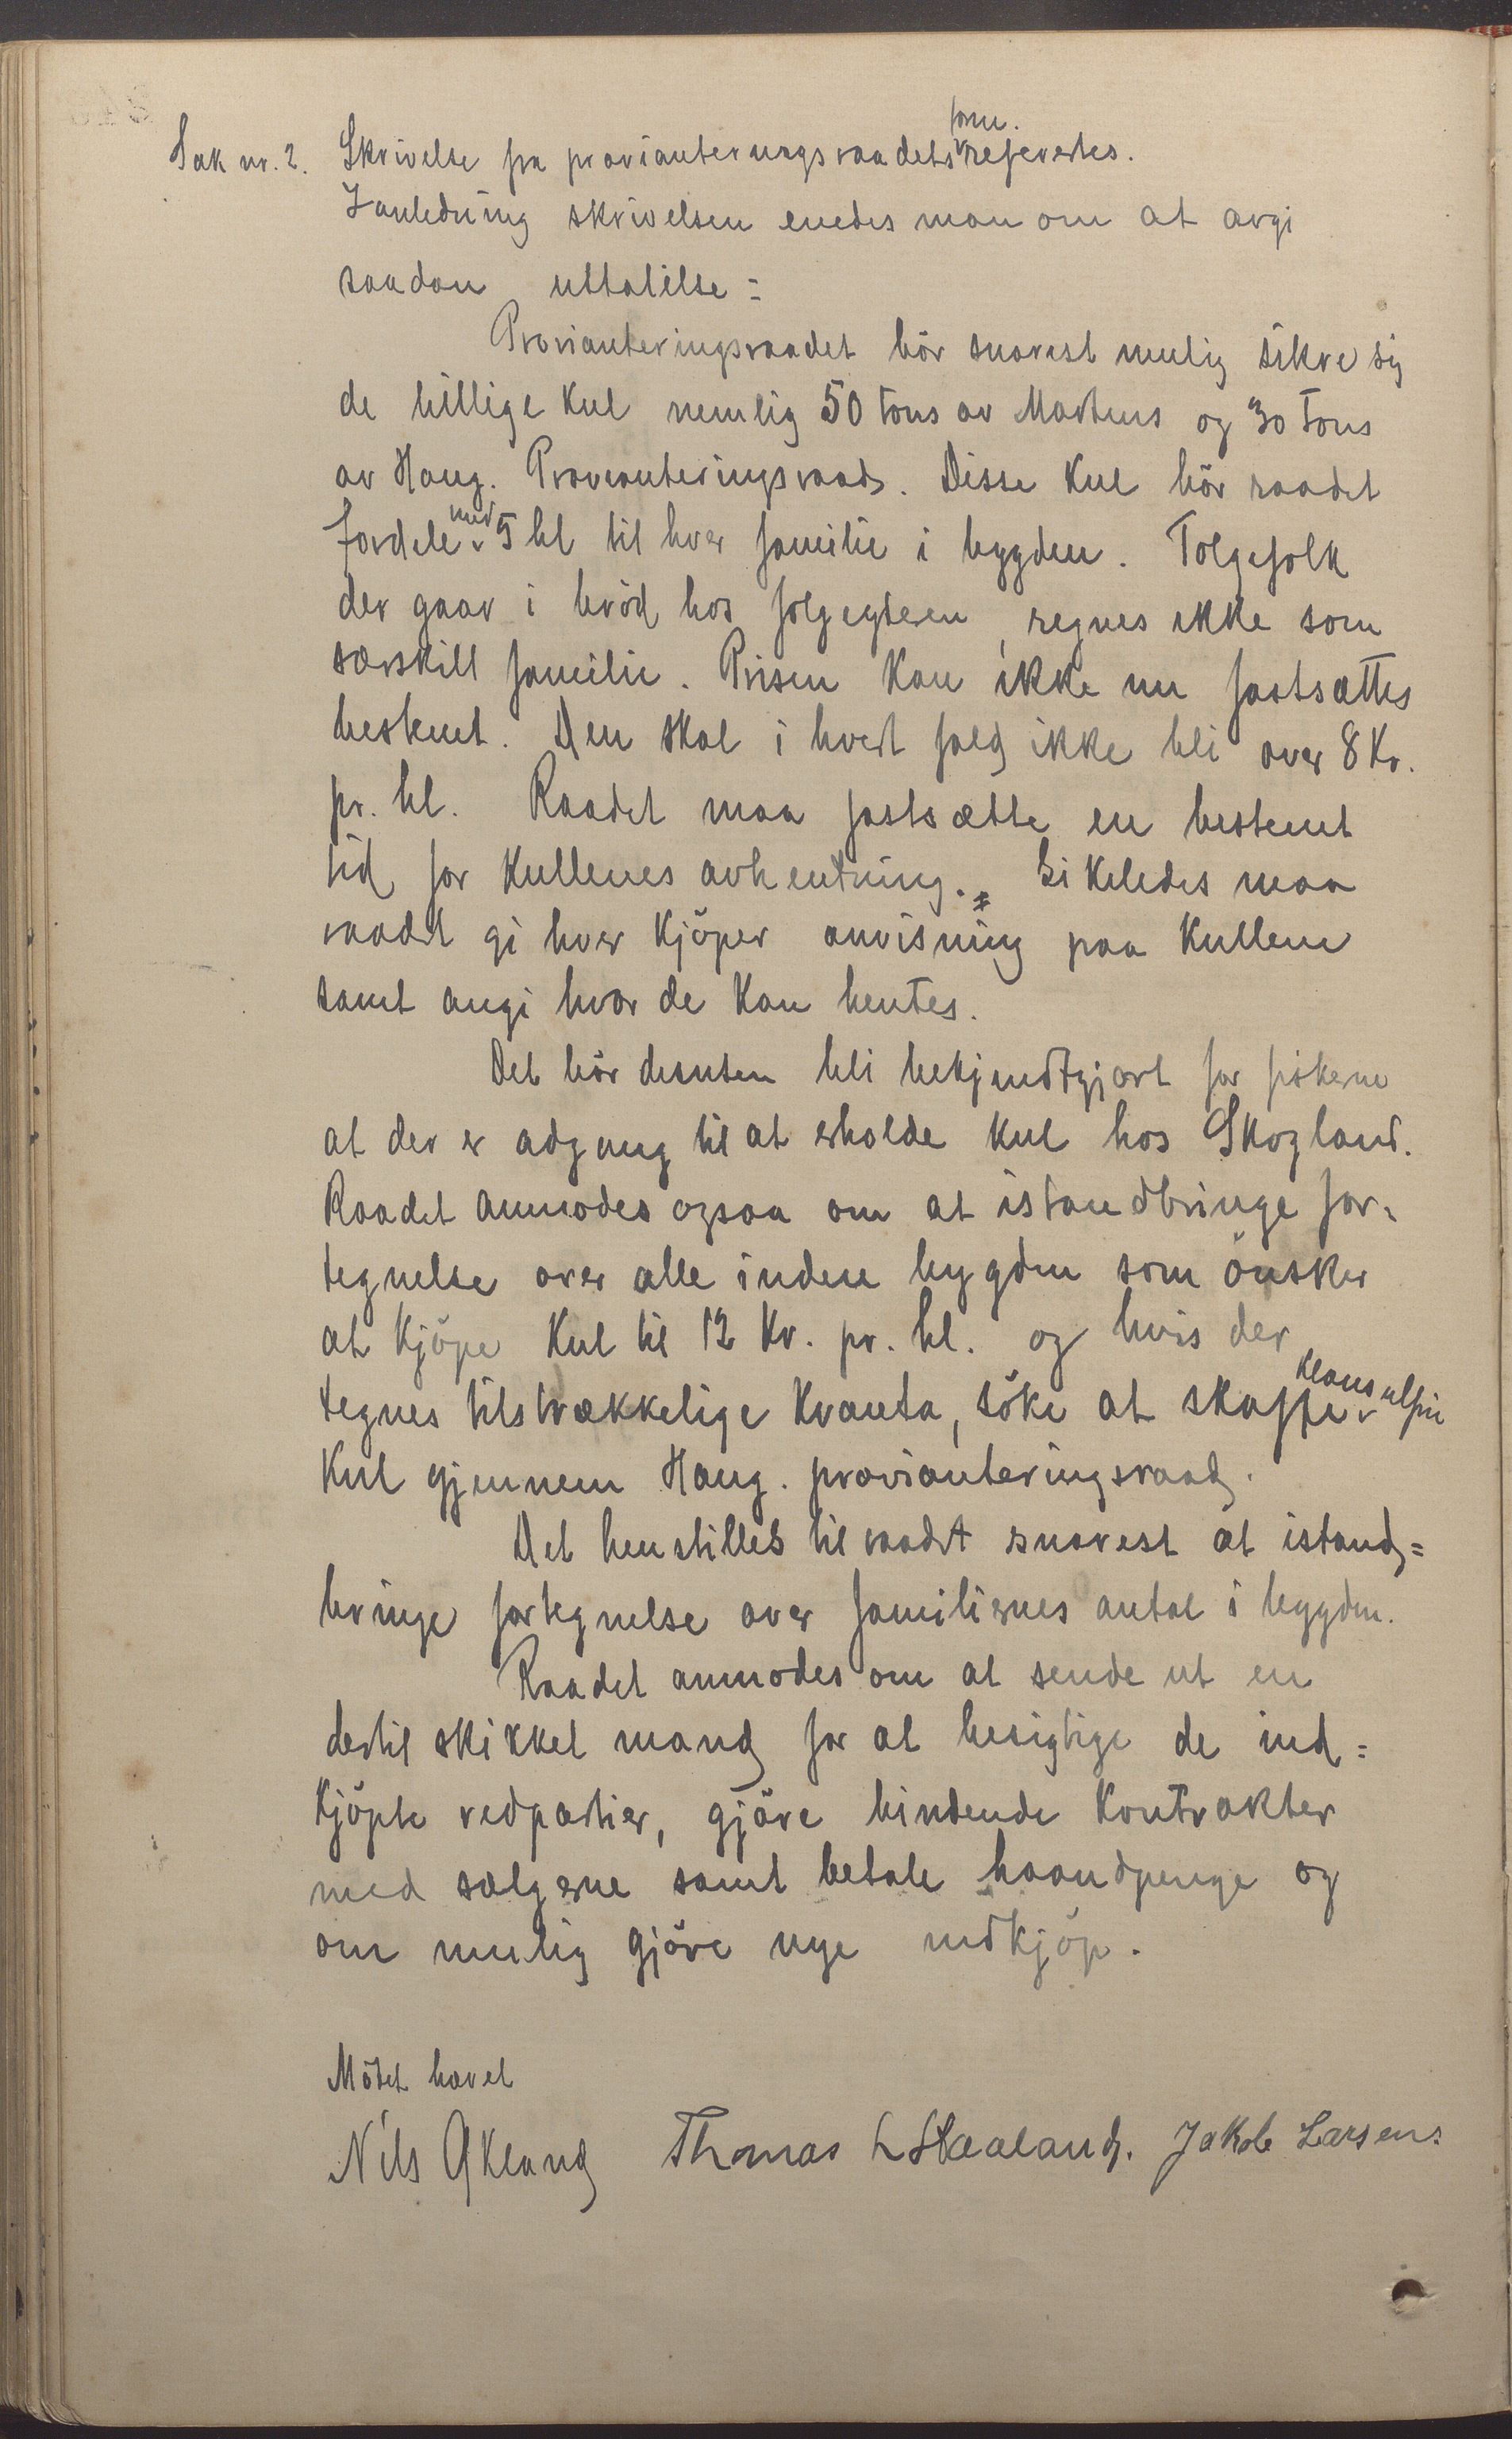 Sak nr. 2. Skrivelse fra provianteringsraadets form. refereertes.
I anledning skrivelsen enedes man om at avgi
saadan uttalelse:
Provianteringsraadet bör snarest mulig sikre sig
de billige Kul nemlig 50 tons av Martens og 30 Tons
av Haug. Provianteringsraad. Disse Kul bör raadet
fordele med 5 hl til hver familie i bygden. Folgefolk
der gaar i bröd hos folgeyteren, regnes ikke som
særskilt familie. Prisen Kan ikke nu fastsættes
bestemt. Den skal i hvert fald ikke bli over 8 Kr.
pr. hl. Raadet maa fastsætte en bestemt
tid for Kullenes avhentning. Likeledes maa
raadet gi hver Kjöper anvisning paa Kullene
samt angi hvor de Kan hentes.
Det bör desuten bli bekjendtgjort for fiskerne
at der er adgang til at erholde Kul hos Skogland.
Raadet anmodes ogsaa om at istandbringe for-
tegnelse over alle inden bygden som önsker
at Kjöpe Kul til 12 Kr. pr. hl. og hvis der
tegnes tilstrækkelige Kvanta, söke at skaffe klausulfrie
Kul gjennem Haug. provianteringsraad.
Det henstilles til raadet snarest at istand=
bringe fortegnelse over familiernes antal i bygden.
Raadet anmodes om at sende ut en
dertil skikket mand for at besigtige de ind=
Kjöpte vedpartier, gjöre bindende Kontrakter
med sælgerne samt betale haandpenge og
om mulig gjöre nye indkjöp.
Mödet hævet
Nils Okland Thomas L Staaland. Jakob Larsen.